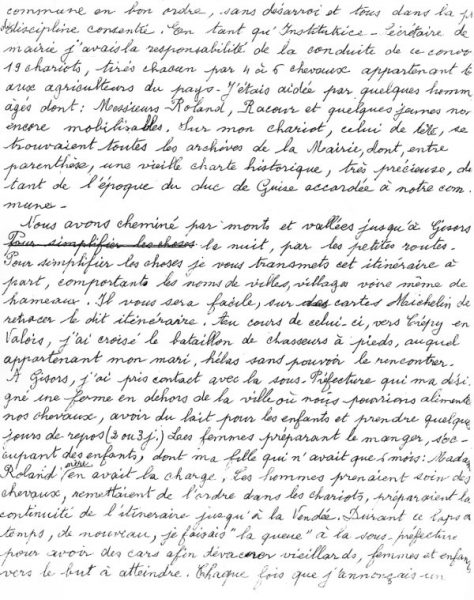 commune en bon ordre, sans désarroi et tous dans la
discipline consentie. En tant qu'Institutrice - Secrétaire de
mairie j'avais la responsabilité de la conduite de ce convoi
19 chariots, tirés chacun par 4 à 5 chevaux appartenant t
aux agriculteurs du pays - J'étais aidée par quelques homm
âgés dont : Messieurs Roland, Racour et quelques jeunes non
encore mobilisables. Sur mon chariot, celui de tête, se
trouvaient toutes les archives de la Mairie, dont, entre
parenthèse, une vieille charte historique, très précieuse, da
tant de l'époque du duc de Guise accordée à notre com
mune -
Nous avons cheminé par monts et vallées jusqu'à Gisors
Pour simplifier les choses la nuit, par les petites routes -
Pour simplifier les choses je vous transmets cet itinéraire à
part, comportant les noms de villes, villages voire même de
hameaux. Il vous sera facile, sur des cartes Michelin de
retracer le dit itinéraire. Au cours de celui-ci, vers Crépy en
Valois, j'ai croisé le bataillon de chasseurs à pieds, auquel
appartenant mon mari, hélas sans pouvoir le rencontrer.
A Gisors, j'ai pris contact avec la sous-Préfecture qui m'a dési
gné une ferme en dehors de la ville où nous pourrions alimente
nos chevaux, avoir du lait pour les enfants et prendre quelque
jours de repos (2 ou 3 j.) Les femmes préparant le manger, s'oc-
cupant des enfants, dont ma fille qui n'avait que 6 mois : Mada
Roland mère en avait la charge, Les hommes prenaient soin des
chevaux, remettaient de l'ordre dans les chariots, préparaient la
continuité de l'itinéraire jusqu'à la Vendée. Durant ce laps de
temps, de nouveau, je faisais "la queue" à la sous-préfecture
pour avoir des cars afin d'évacuer vieillards, femmes et enfan
vers le but à atteindre. Chaque fois que j'annonçais un